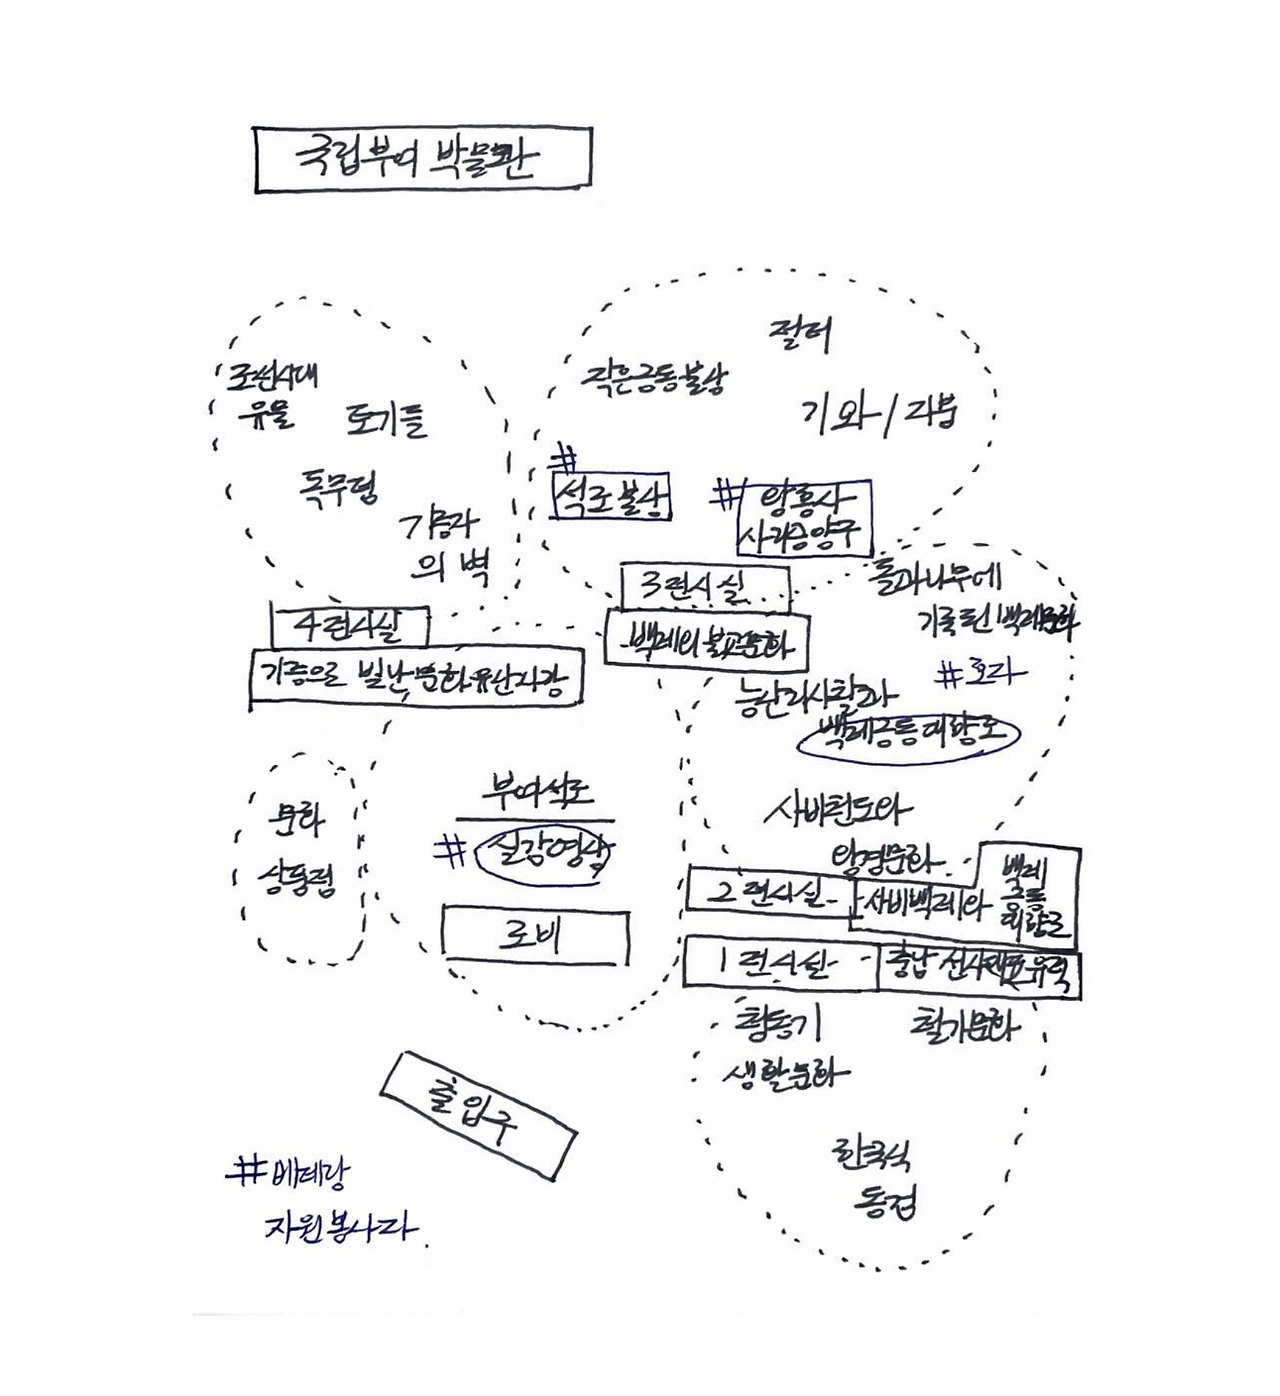 국립부여박물관
절터
작은금동불상
기와/
조선시대
유물
토기들
독무덤
기증자
의 벽
#
석조불상
#
왕흥사
사리
3전시실
백제의 불교문화
돌과나무에
기록된 백제문화
4전시실
기증으로 빛난 문화유산사랑
#호자
능산리사찰과
백제금동대향로
부여석조
# 실감영상
로비
문화
상품점
사비천도와
왕경문화
2전시실
사비백제와
백제
금동
대향로
1전시실
충남
청동기
생활문화
출입구
한국식
동검
#베테랑
자원봉사자